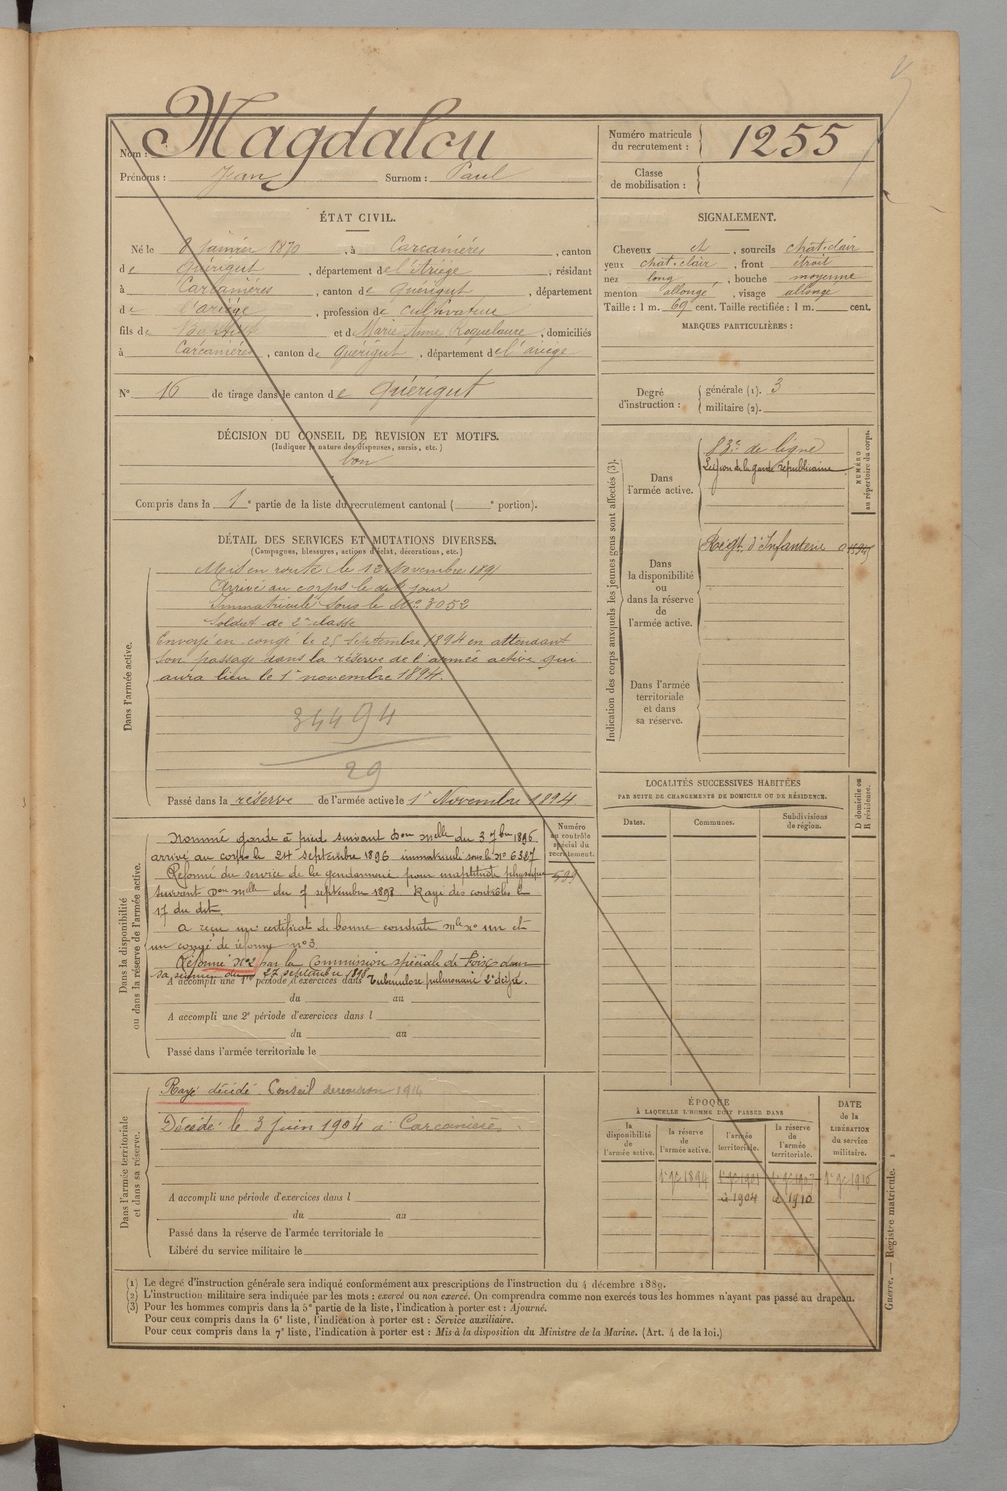 Nom : Magdalou
Prénoms : Jean Surnom : Paul
Numéro matricule du recrutement : 1255
Classe de mobilisation :
ÉTAT CIVIL.
Né le 8 janvier 1870, à Carcanières, canton
de Quérigut, département de l'Ariège, résidant
à Carcanières, canton de Quérigut, département
de l'Ariège, profession de cultivateur
fils de et de Marie Anne Roquelaure, domiciliés
à Carcanières, canton de Quérigut, département de l'Ariège
N° 16 de tirage dans le canton de Quérigut
SIGNALEMENT.
Cheveux et, sourcils chat. clair
yeux chat. clair, front étroit
nez long, bouche moyenne
menton allongé, visage allongé
Taille : 1 m. 69 cent. Taille rectifiée : 1 m. cent.
MARQUES PARTICULIÈRES :
Degré d'instruction : générale (1). 3
militaire (2).
DÉCISION DU CONSEIL DE REVISION ET MOTIFS.
(Indiquer la nature des dispenses, sursis, etc.)
bon
Compris dans la 1e partie de la liste du recrutement cantonal ( e portion).
DÉTAIL DES SERVICES ET MUTATIONS DIVERSES.
(Campagnes, blessures, actions d'éclat, décorations, etc.)
Dans l'armée active.
Mis en route le 13 Novembre 1891
Arrivé au corps le dit jour
Immatriculé sous le No 3052
Soldat de 2e classe
Envoyé en congé le 25 septembre 1894 en attendant
son passage dans la réserve de l'armée active qui
aura lieu le 1er novembre 1894.
34494
29
Passé dans la réserve de l'armée active le 1er Novembre 1894
Numéro au contrôle spécial du recrutement.
599
Dans la disponibilité ou dans la réserve de l'armée active.
Nommé garde à pied suivant Don melle du 3 7bre 1896
arrivé au corps le 24 septembre 1896 immatriculé sous le No 6387
Réformé du service de la gendarmerie pour inaptitude physique
suivant Don melle du 7 septembre 1898 Rayé des contrôles le
17 du dit.
a reçu un certificat de bonne conduite un et
un congé de réforme n° 3
Réformé N°2 par la Commission spéciale de Foix dans
sa séance du 27 septembre 1898
A accompli une 1re période d'exercices dans Tuberculose pulmonaire 2e degré.
du au
A accompli une 2e période d'exercices dans l
du au
Passé dans l'armée territoriale le
Dans l'armée territoriale et dans sa réserve.
Rayé décédé. Conseil de revision 1914
Décédé le 3 Juin 1904 à Carcanières.
A accompli une période d'exercices dans l
du au
Passé dans la réserve de l'armée territoriale le
Libéré du service militaire le
Indication des corps auxquels les jeunes gens sont affectés (3).
NUMÉRO au répertoire du corps.
Dans l'armée active.
83e de ligne
Légion de la garde républicaine
Dans la disponibilité ou dans la réserve de l'armée active.
Régt d'Infanterie
Dans l'armée territoriale et dans sa réserve.
LOCALITÉS SUCCESSIVES HABITÉES
PAR SUITE DE CHANGEMENTS DE DOMICILE OU DE RÉSIDENCE.
D domicile ou R résidence.
Dates. Communes. Subdivisions de région.
ÉPOQUE
À LAQUELLE L'HOMME DOIT PASSER DANS
la disponibilité de l'armée active.
la réserve de l'armée active.
l'armée territoriale.
la réserve de l'armée territoriale.
DATE de la LIBÉRATION du service militaire.
1894
1904
1910
(1) Le degré d'instruction générale sera indiqué conformément aux prescriptions de l'instruction du 4 décembre 1889.
(2) L'instruction militaire sera indiquée par les mots : exercé ou non exercé. On comprendra comme non exercés tous les hommes n'ayant pas passé au drapeau.
(3) Pour les hommes compris dans la 5e partie de la liste, l'indication à porter est : Ajourné.
Pour ceux compris dans la 6e liste, l'indication à porter est : Service auxiliaire.
Pour ceux compris dans la 7e liste, l'indication à porter est : Mis à la disposition du Ministre de la Marine. (Art. 4 de la loi.)
Guerre. — Registre matricule. 1